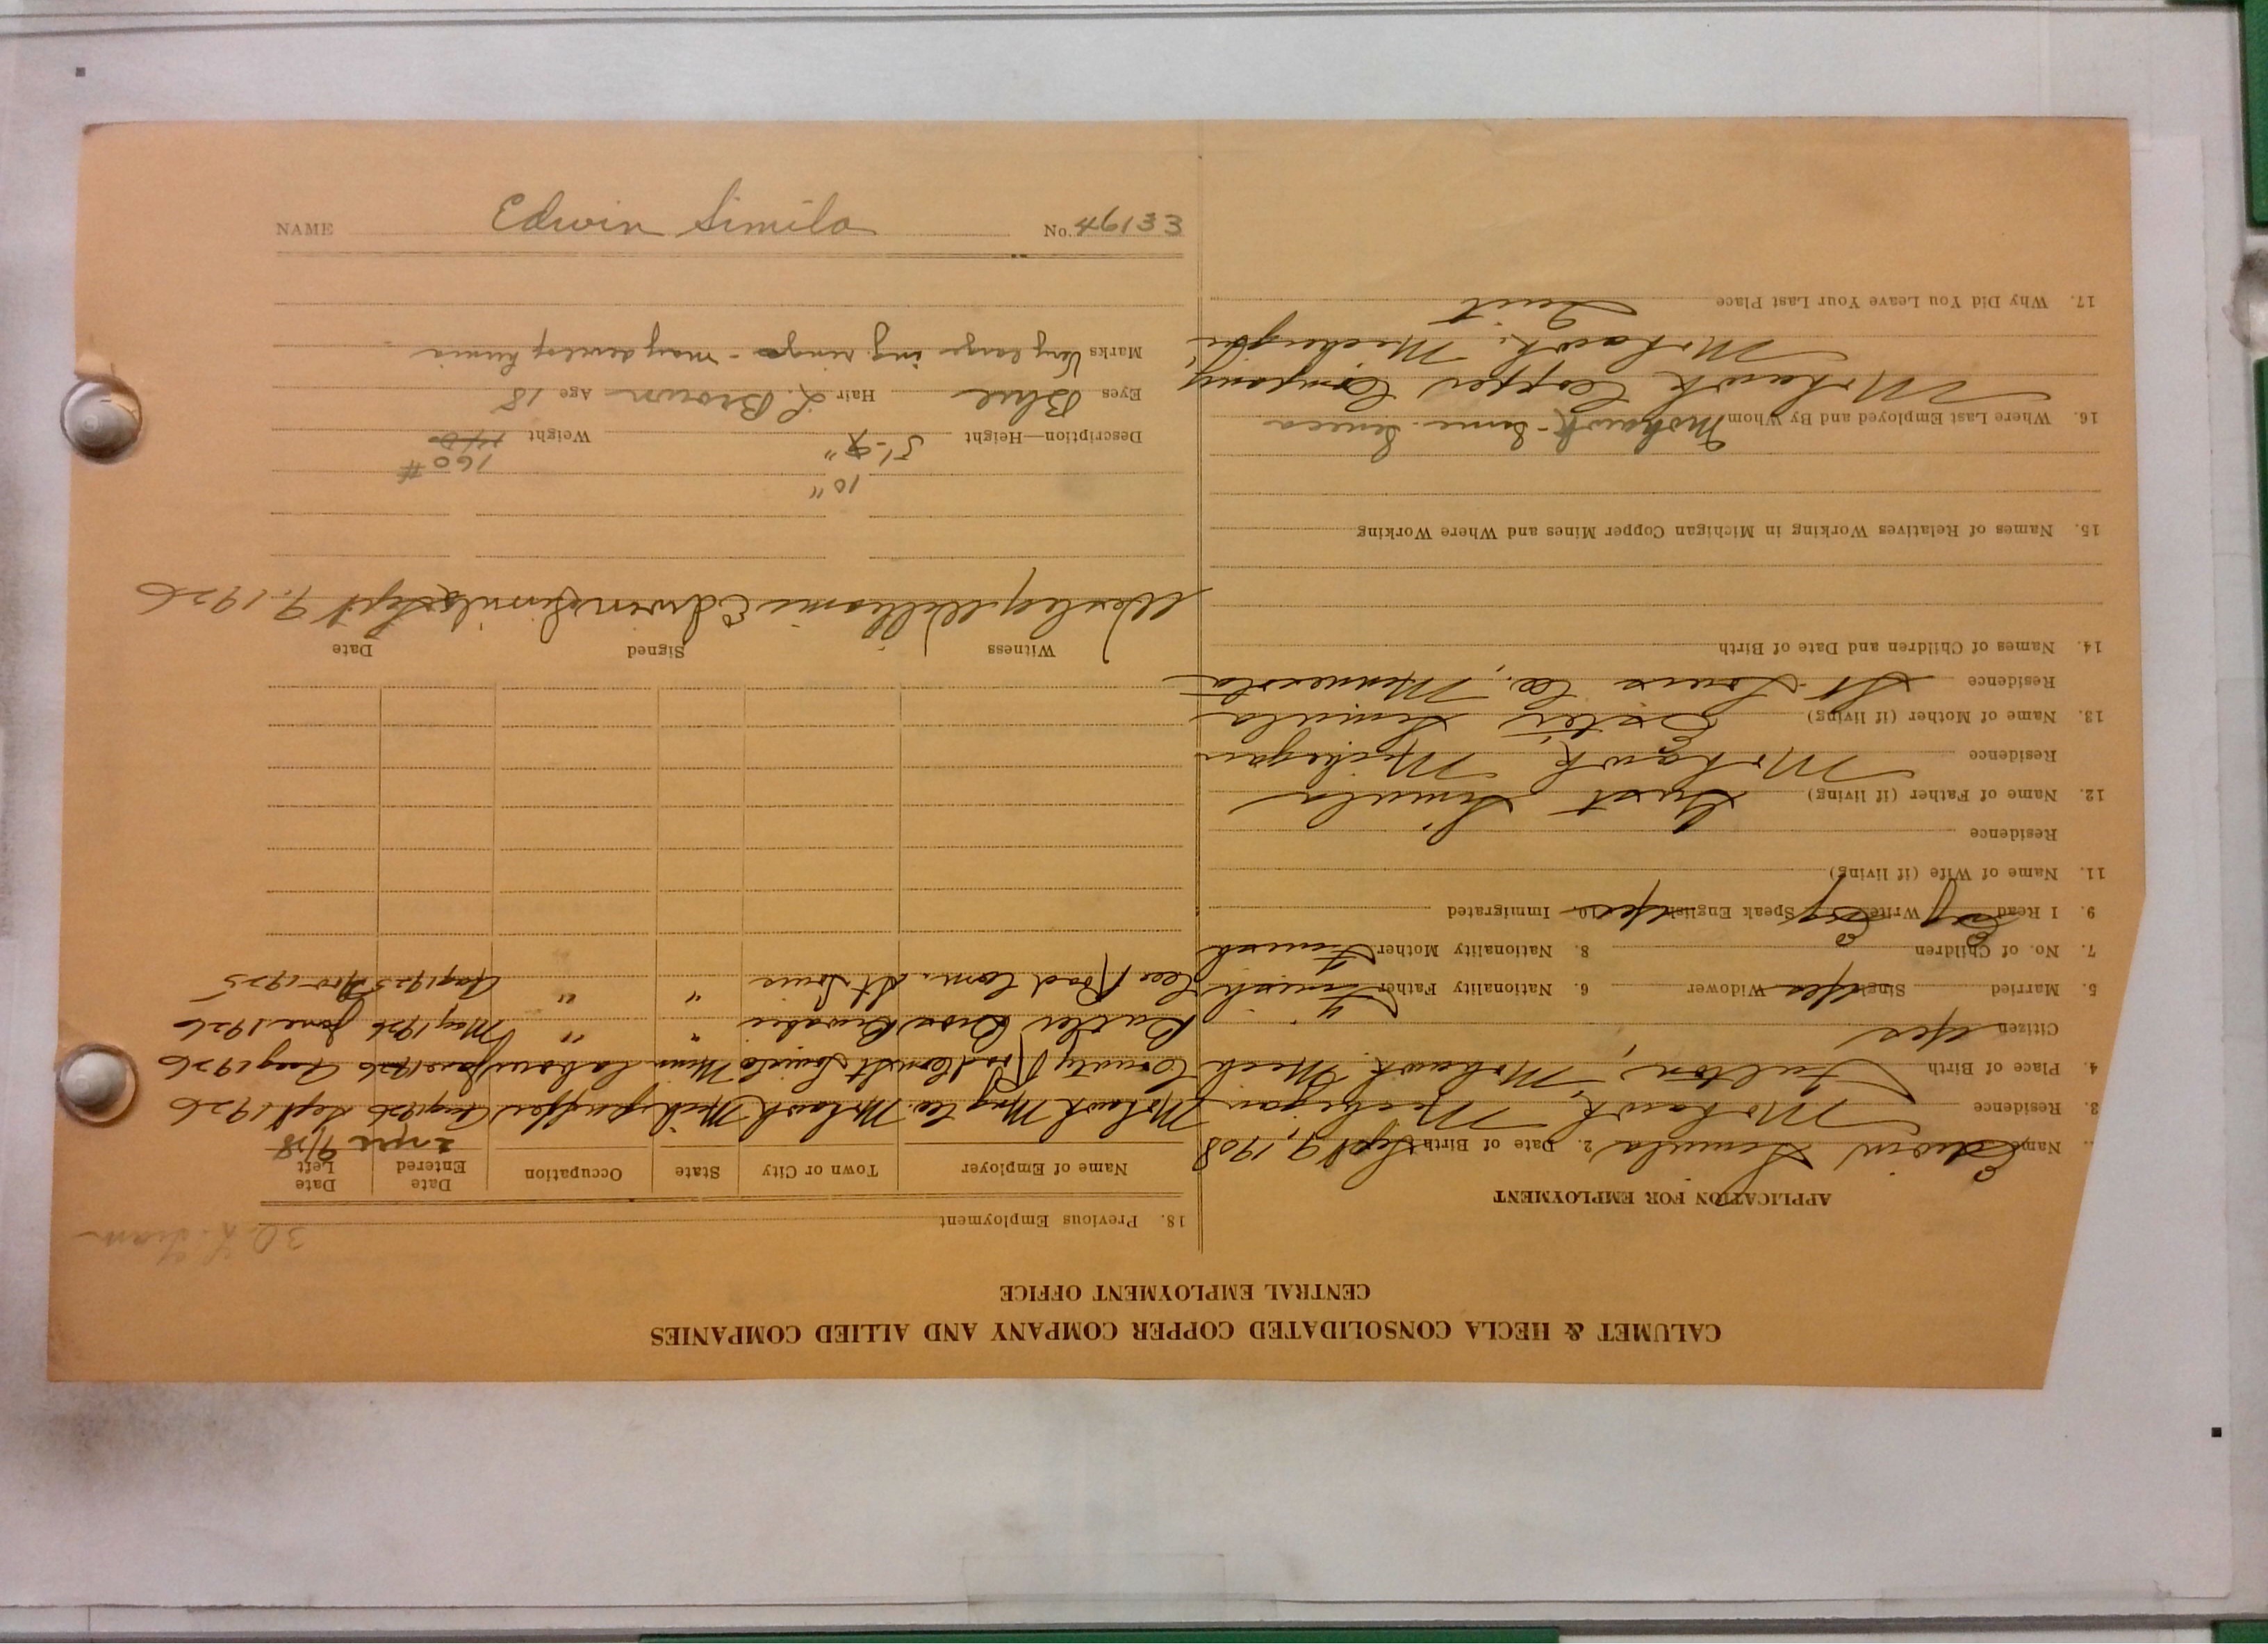 CALUMET & HECLA CONSOLIDATED COPPER COMPANY AND ALLIED COMPANIES
CENTRAL EMPLOYMENT OFFICE
APPLICATION FOR EMPLOYMENT
Name Edwin Simula 2. Date of Birth Sept 9, 1908
3. Residence Mohawk, Michigan
4. Place of Birth Fulton, Mohawk, Mich
Citizen Yes
5. Married Single Yes Widower 6. Nationality Father Finnish
7. No. of Children 8. Nationality Mother Finnish
9. I Read Eng Write Eng Speak English Yes 10. Immigrated
11. Name of Wife (if living)
Residence
12. Name of Father (if living) Gust Simula
Residence Mohawk, Michigan
13. Name of Mother (if living) Simula
Residence St. Louis Co., Minnesota
14. Names of Children and Date of Birth
15. Names of Relatives Working in Michigan Copper Mines and Where Working
16. Where Last Employed and By Whom Mohawk - Seneca
Mohawk Copper Company
Mohawk, Michigan
17. Why Did You Leave Your Last Place Quit
30
18. Previous Employment
Name of Employer Town or City State Occupation Date Entered Date Left
9/28
Mohawk Mng Co. Mohawk Mich Aug 1926 Sept 1926
County Road Com St Louis Minn labour June 1926 Aug 1926
Butler Bros " " May 1926 June 1926
Road Com. St. Louis " " Aug 1925 Nov 1925
Witness Signed Date
Wesley Williams Edwin Simula Sept 9, 1926
10" 160 #
Description—Height 5'-9" Weight 140
Eyes Blue Hair L. Brown Age 18
Marks Very large ing. rings - may develop hernia
NAME Edwin Simila No. 46133